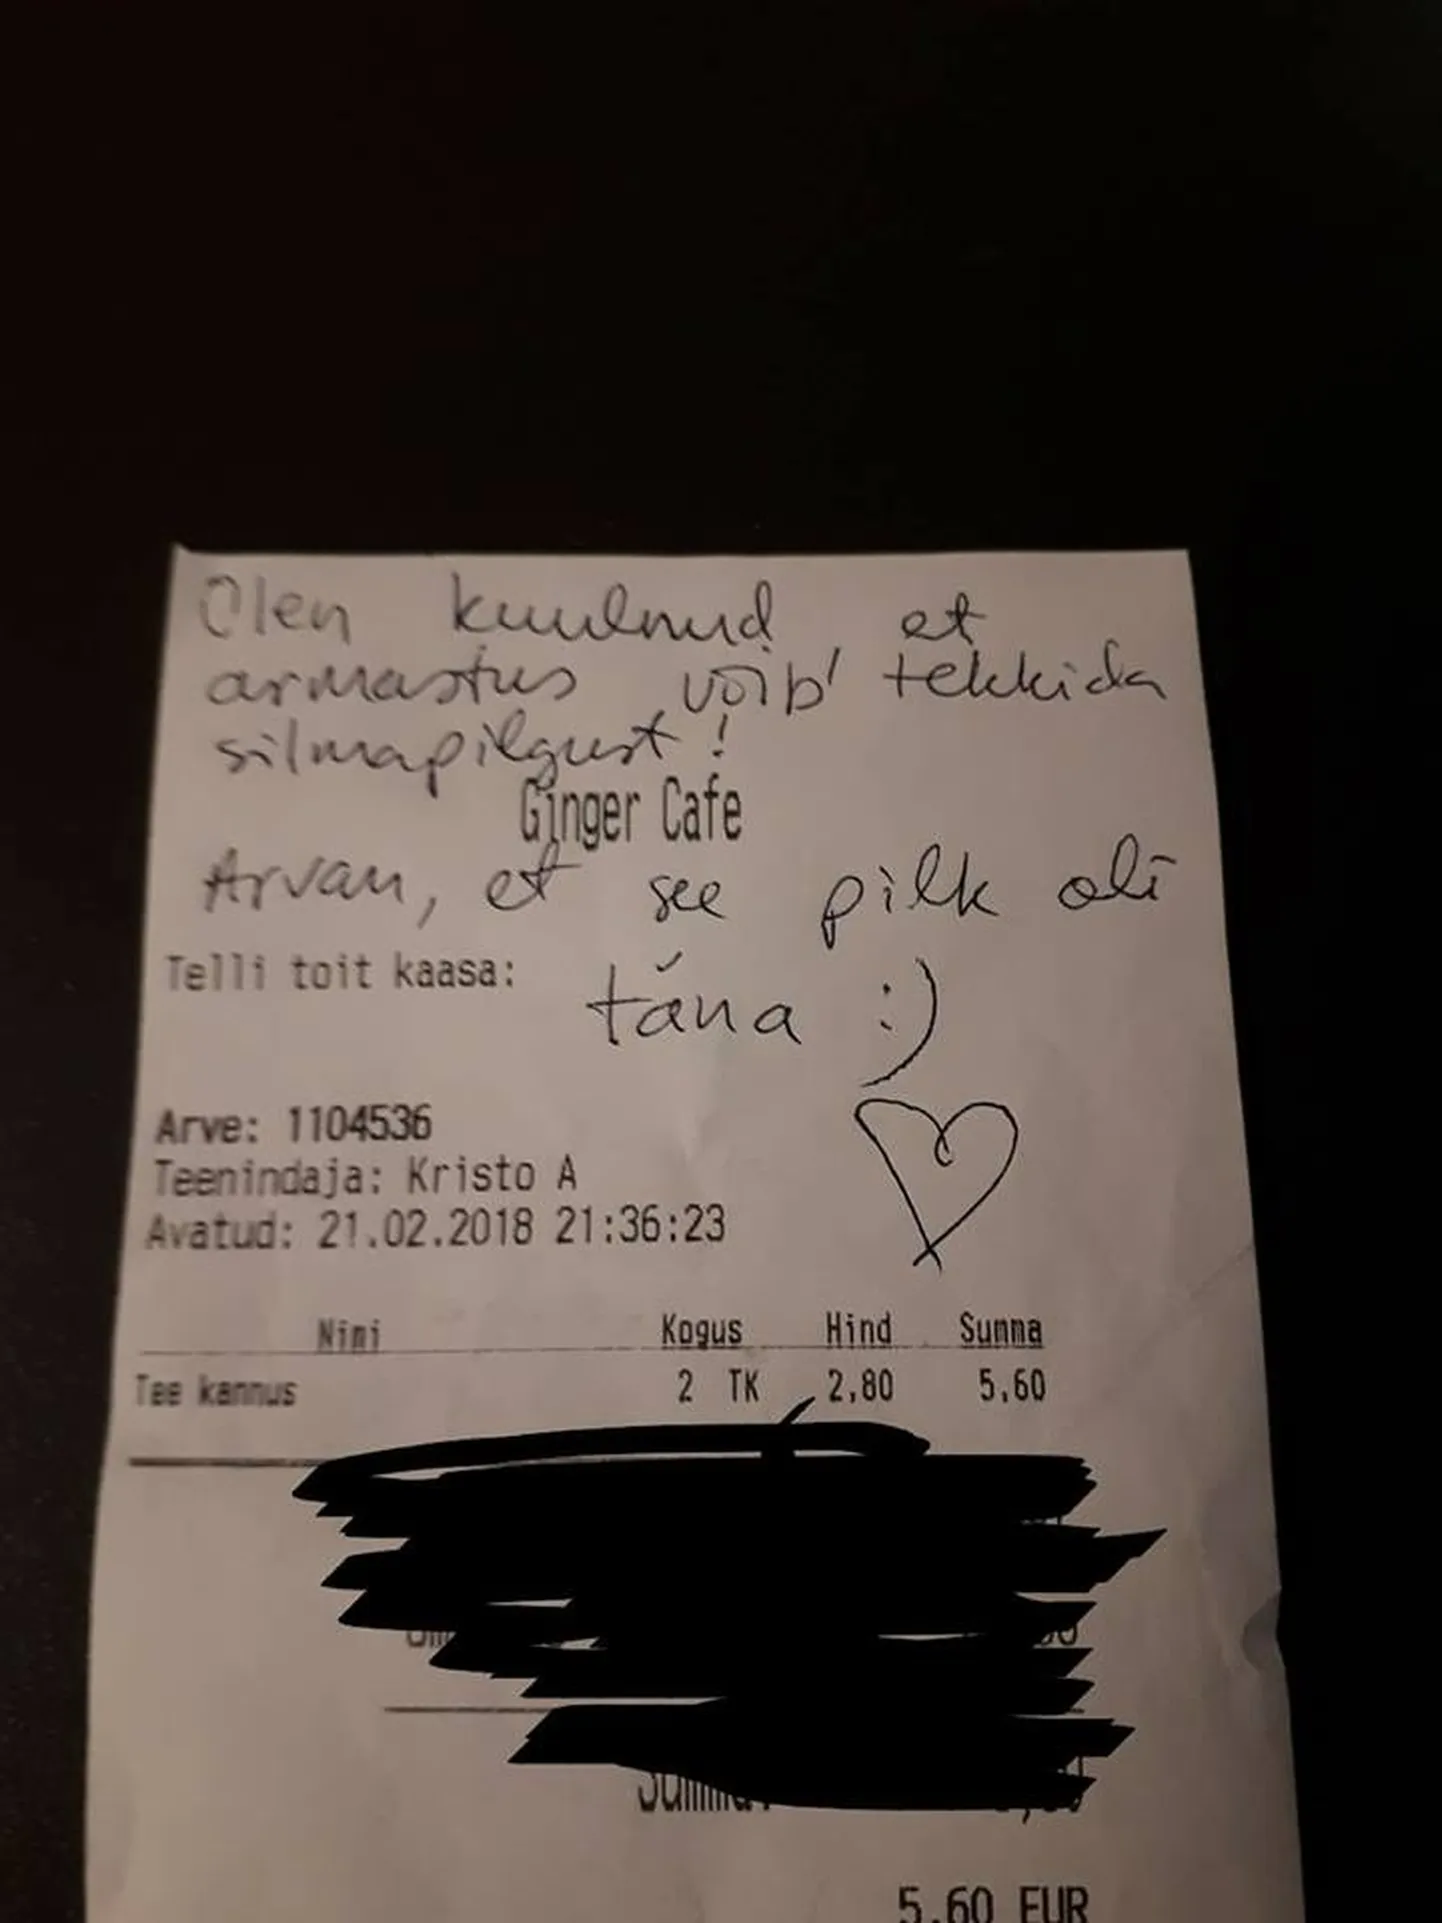 Olen kuulnud et
armastus võib tekkida
silmapilgust!
Ginger Cafe
Arvan, et see pilk oli
Telli toit kaasa:
täna :)
Arve: 1104536
Teenindaja: Kristo A
Avatud: 21.02.2018 21:36:23
Nimi Kogus Hind Summa
Tee kannus 2 TK 2,80 5,60
5,60 EUR